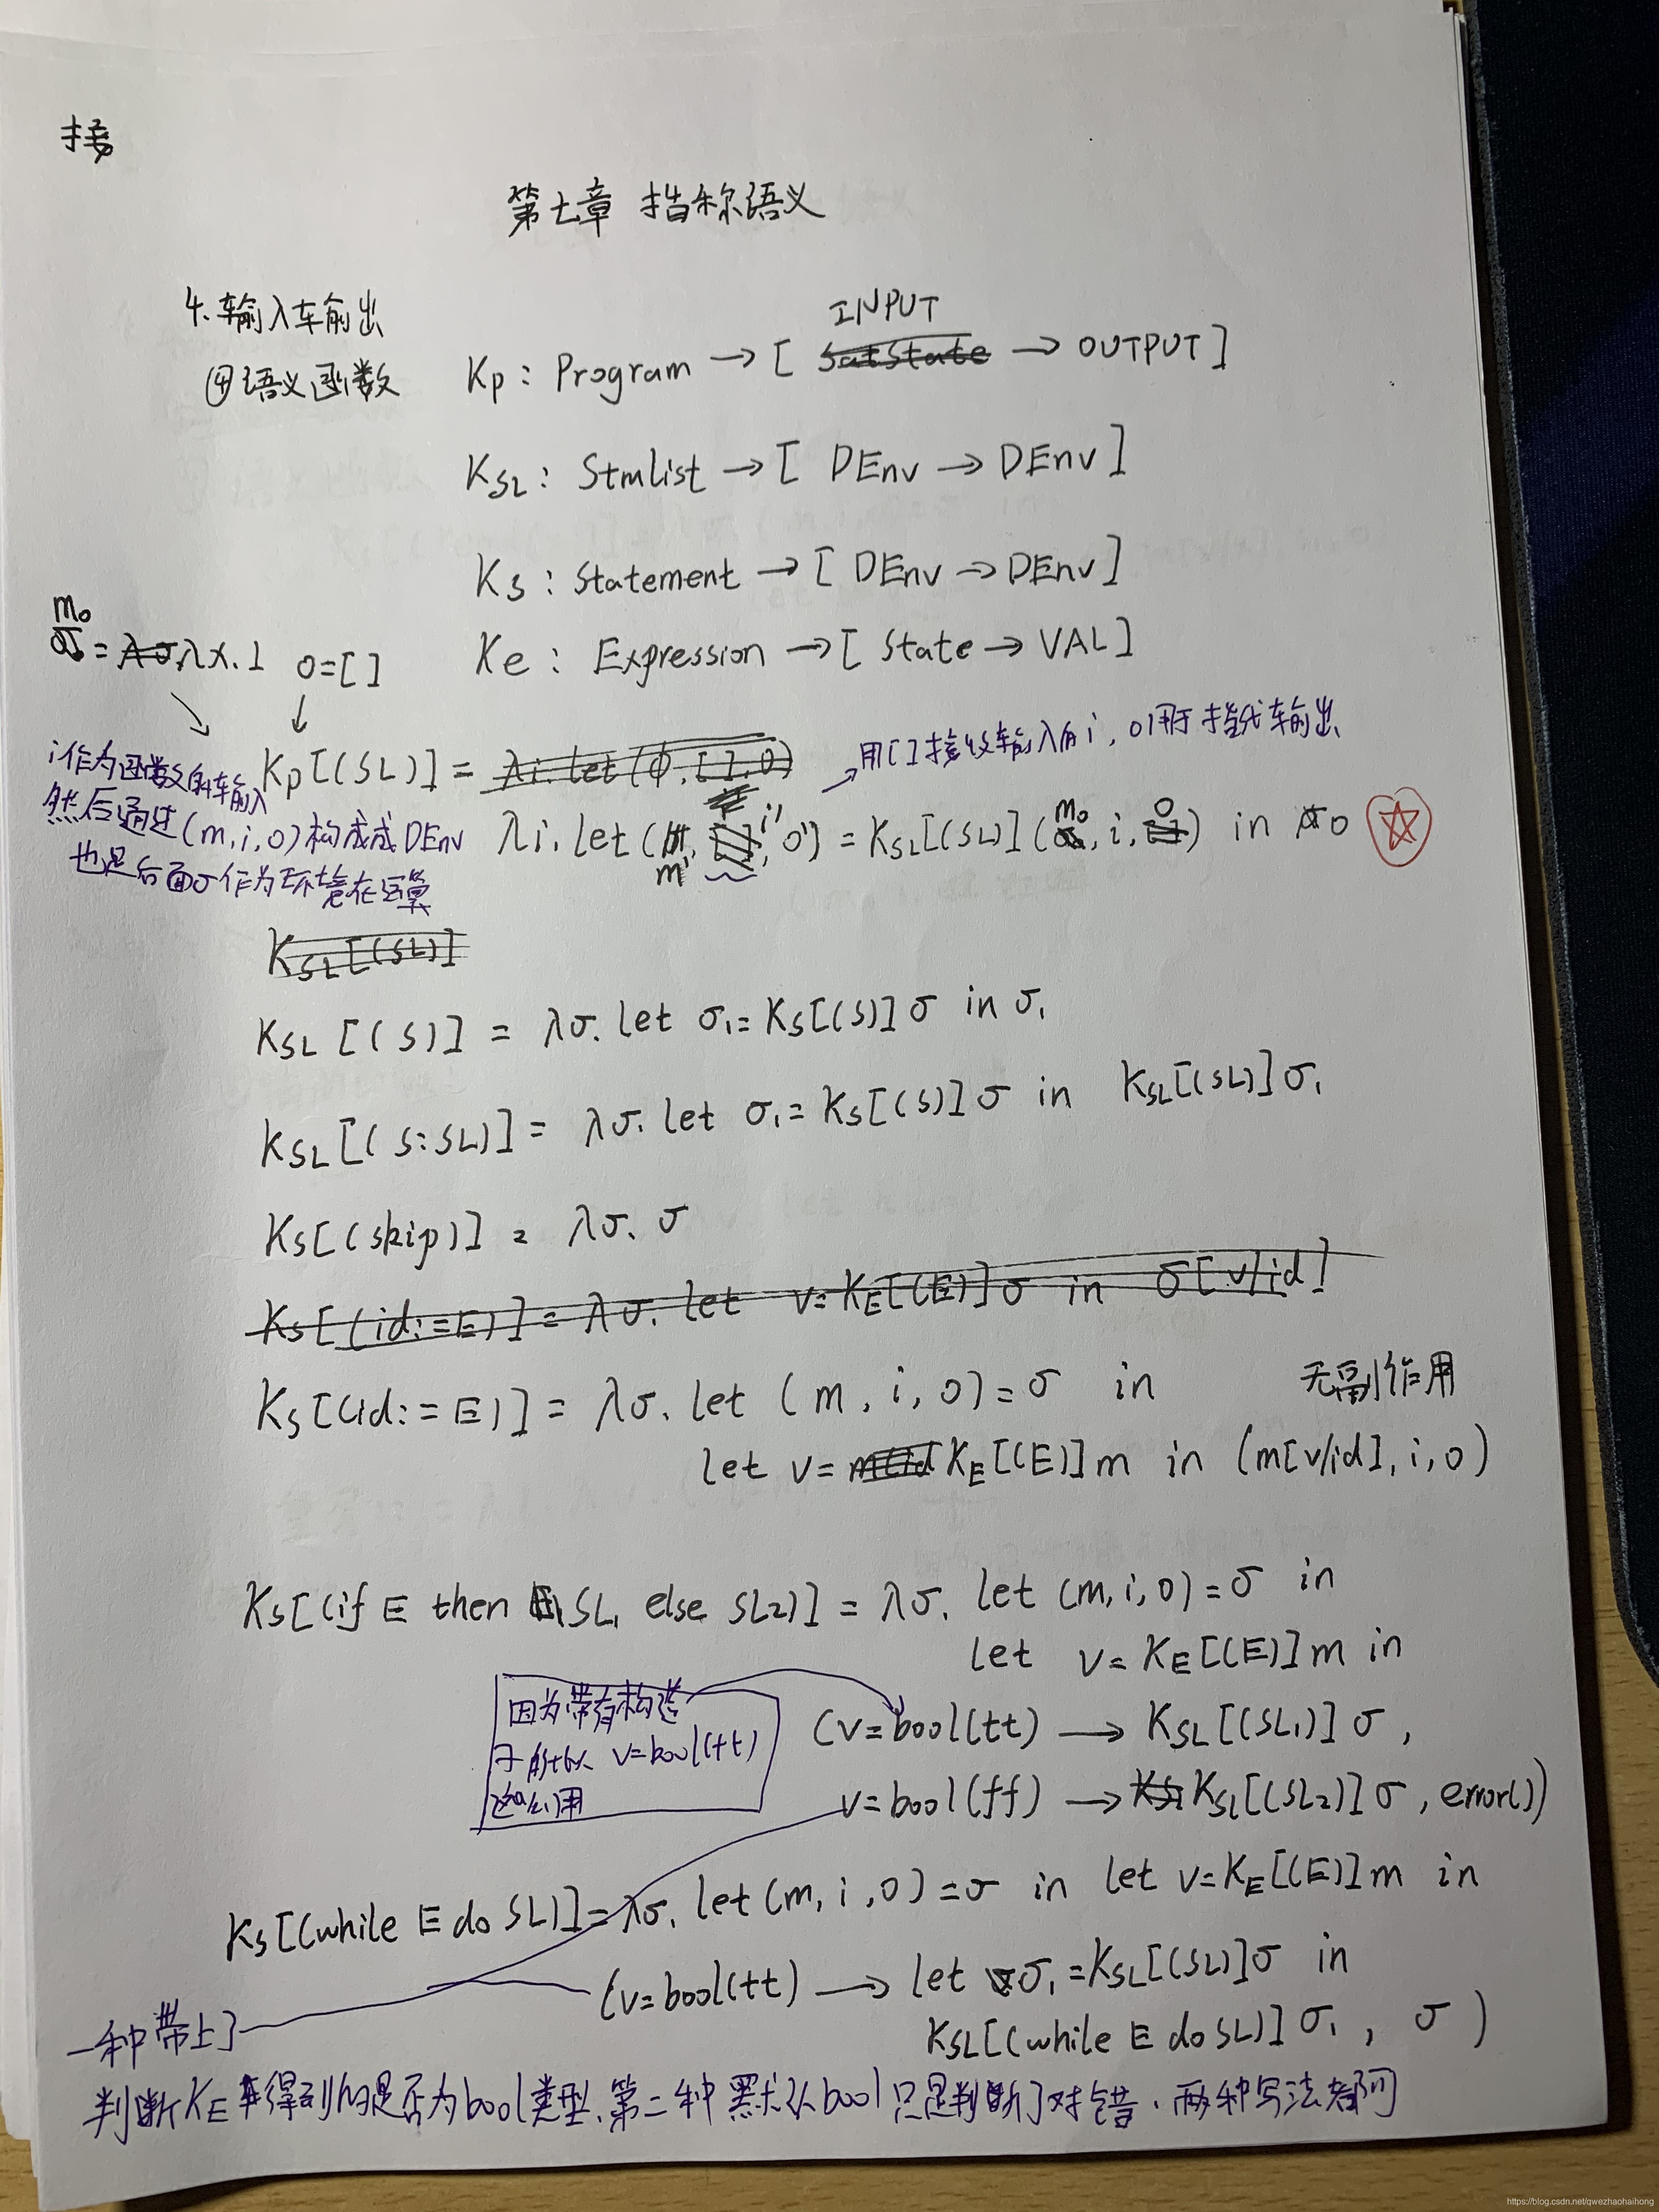 接
第七章 指称语义
4. 输入输出
④语义函数
INPUT
Kp : Program → [ SatState → OUTPUT ]
KSL : Stmlist → [ DEnv → DEnv ]
Ks : Statement → [ DEnv → DEnv ]
Ke : Expression → [ State → VAL ]
m0
σ0 = λσ.λx.⊥ o=[ ]
Kp[(SL)] = λi.let(φ,[ ],o)
用[ ]接收输入的i,o用于指代输出
i作为函数的输入
然后通过(m,i,o)构成成DEnv
也是后面σ作为环境在运算
λi.let(m', i', o') = KSL[(SL)](m0, i, o) in o
KSL[(SL)]
KSL[(S)] = λσ. let σ1=Ks[(S)]σ in σ1
KSL[(S:SL)] = λσ. let σ1=Ks[(S)]σ in KSL[(SL)]σ1
Ks[(skip)] = λσ. σ
Ks[(id:=E)] = λσ. let v=KE[(E)]σ in σ[v/id]
Ks[(id:=E)] = λσ. let (m, i, o)=σ in 无副作用
let v=KE[(E)]m in (m[v/id], i, o)
Ks[(if E then SL1 else SL2)] = λσ. let (m,i,o)=σ in
let v=KE[(E)]m in
(v=bool(tt) → KSL[(SL1)]σ ,
v=bool(ff) → KSL[(SL2)]σ , error())
因为带有构造
v=bool(tt)
用
Ks[(while E do SL)]=λσ. let(m, i, o)=σ in let v=KE[(E)]m in
(v=bool(tt) → let σ1=KSL[(SL)]σ in
KSL[(while E do SL)]σ1 , σ )
一种带上了
判断KE得到的是否为bool类型、第二种默认bool只是判断了对错.两种写法都可
https://blog.csdn.net/qwezhaohaihong